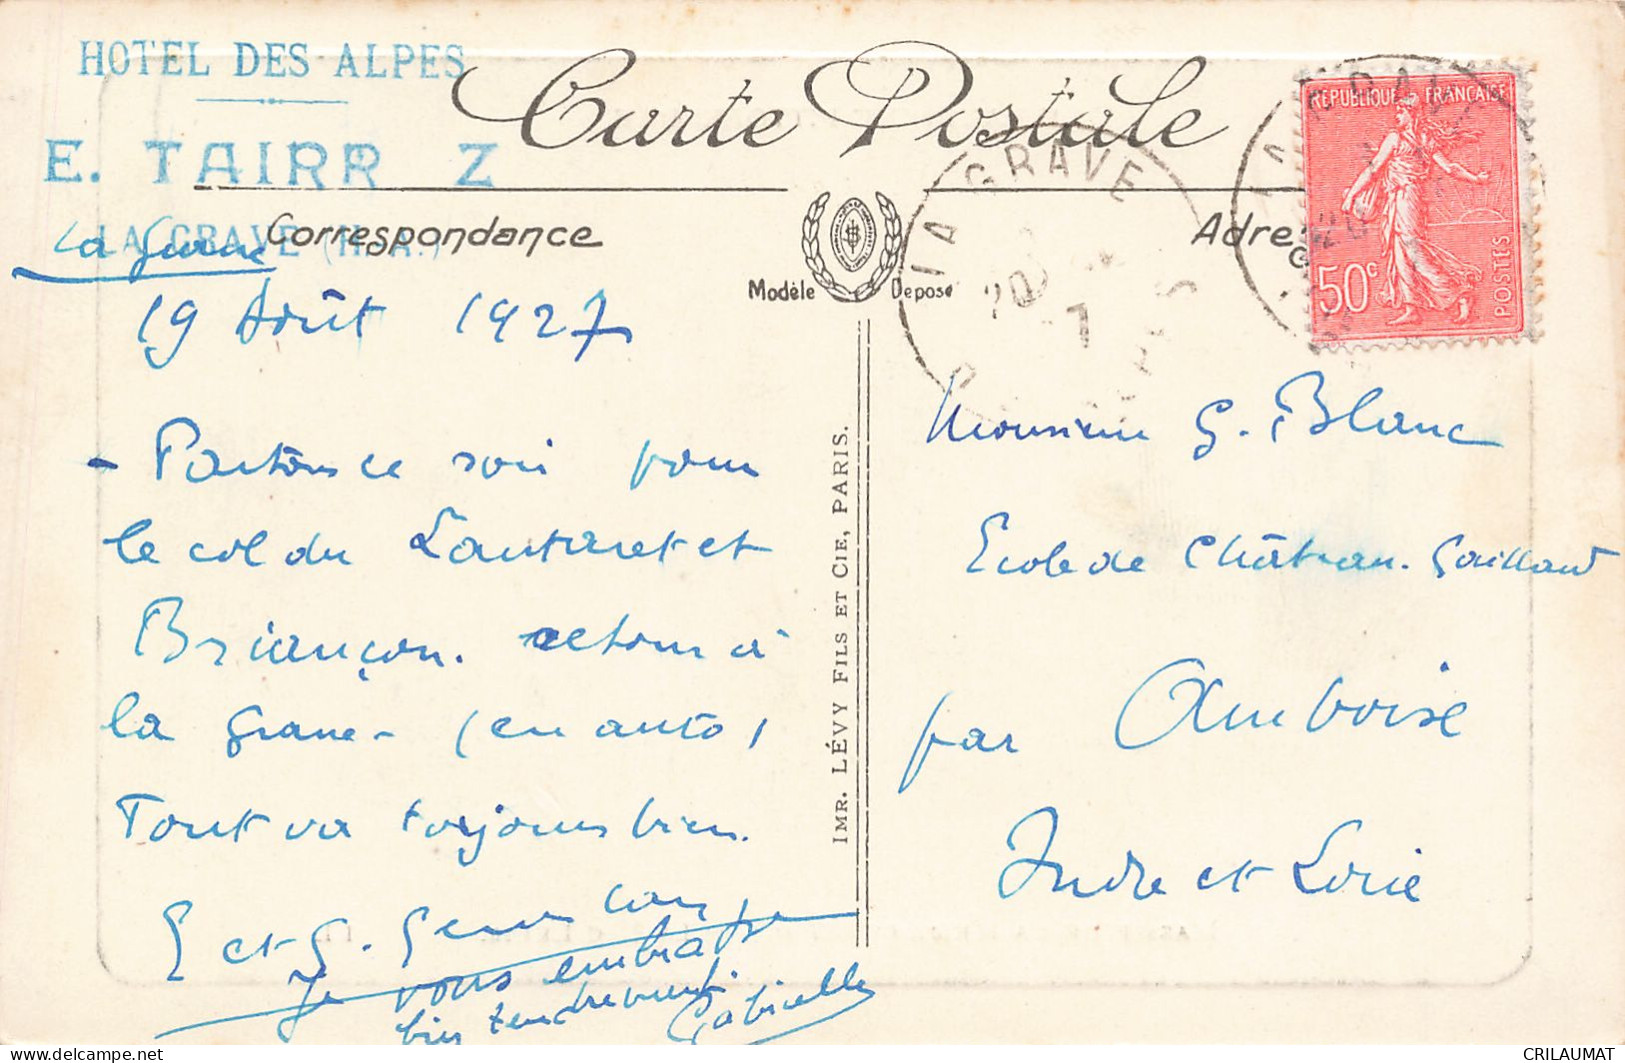 HOTEL DES ALPES
E. TAIRR Z
LA GRAVE (H. A.)
Carte Postale
Correspondance
Adre
Modèle Deposé
LA GRAVE
REPUBLIQUE FRANÇAISE
50c
POSTES
La Grave
19 Août 1927
- Partons ce soir pour
le col du Lautaret et
Briançon. retour à
la Grave - (en auto)
Tout va toujours bien.
E et G.
Je vous embrasse
bien tendrement
Gabrielle
IMR. LÉVY FILS ET CIE, PARIS.
Monsieur G. Blanc
Ecole de Château-Gaillard
par Amboise
Indre et Loire
CRILAUMAT